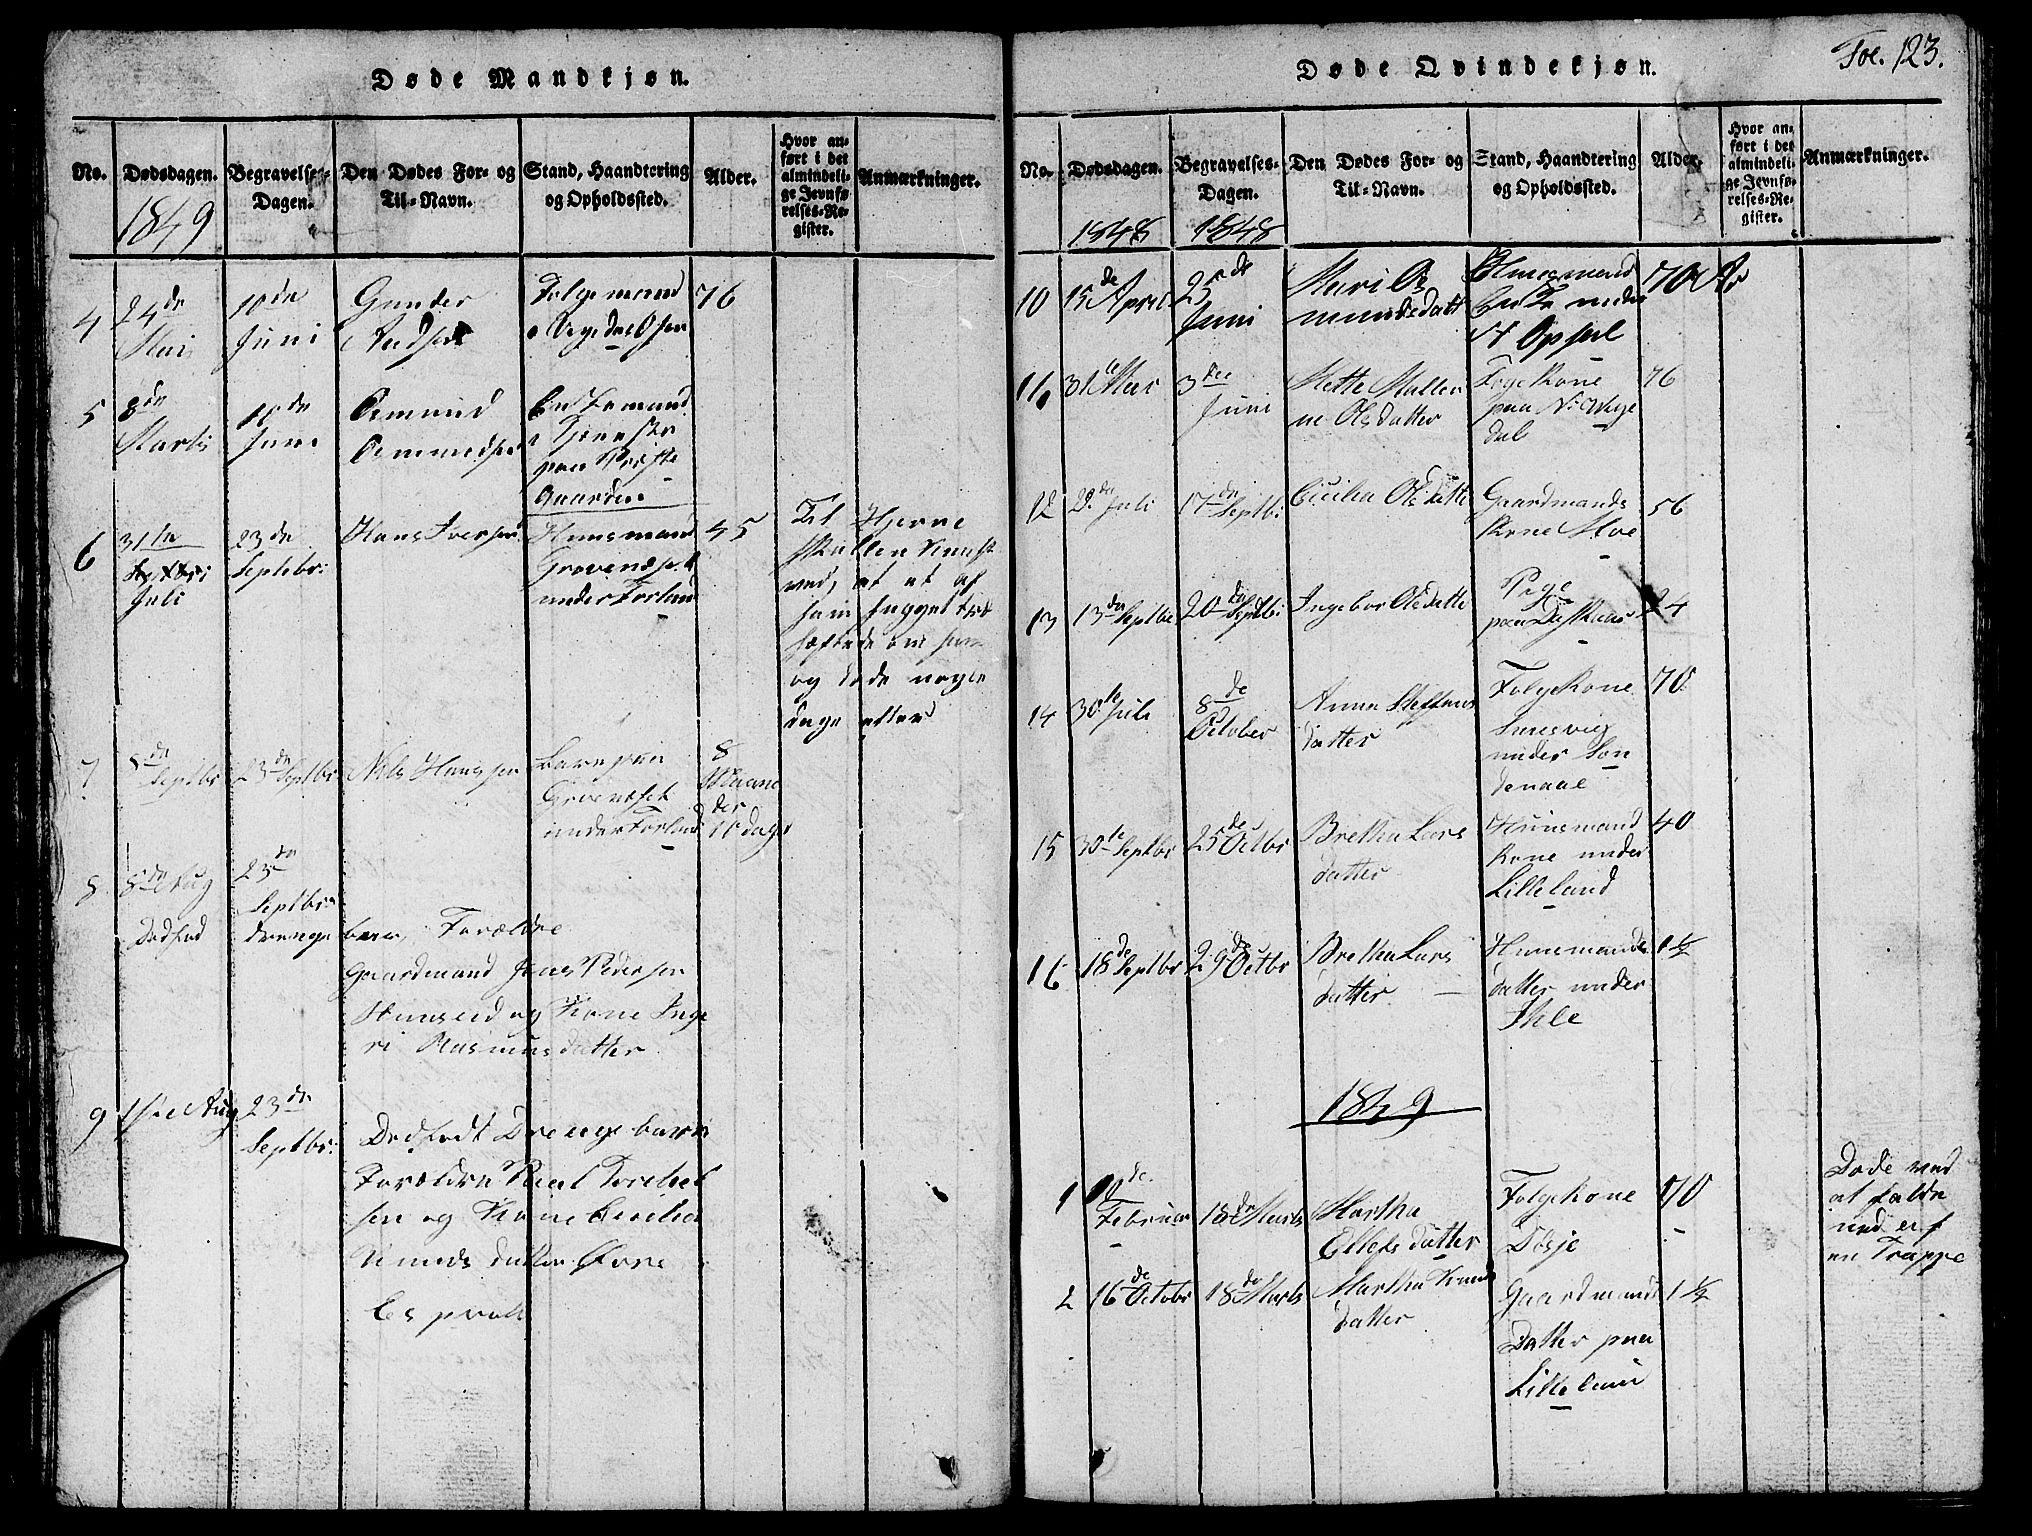 Døde Mandkjøn.
No.
Dødsdagen.
Begravelses-
Dagen.
Den Dødes For- og
Til-Navn.
Stand, Haandtering
og Opholdssted.
Alder.
Hvor an-
ført i det
almindeli-
ge Jevnfø-
relses-Re-
gister.
Anmærkninger.
1849
4
24de
Mai
10de
Juni
Gunder
76
5
8de
Marts
10de
Juni
Omund
Omundsen
i Tjeneste
paa Præste
Gaarden
6
31te
Juli
23de
Septbr:
Hans Iversen
Huusmand
under Forland
45
Til Hjerne
og døde nogle
dage efter
7
8de
Septbr
23de Septbr
Niels Hanssen
Barn paa
under Forland
8
Maane
der
10 dage
8
8de Aug
Dødfød
23de
Septbr:
Drenge
barn, Forældre
Gaardmand Jens Pedersen
Hunseid og Kone Inge
ri Rasmusdatter
9
Aug
23de
Septbr:
Dødfødt Drengebarn
Forældre Poul Torkel
sen og Kone Cecilia
datter
Døde Qvindekjøn.
Fol. 123.
No.
Dødsdagen.
Begravelses-
Dagen.
Den Dødes For- og
Til-Navn.
Stand, Haandtering
og Opholdssted.
Alder.
Hvor an-
ført i det
almindeli-
ge Jevnfø-
relses-Re-
gister.
Anmærkninger.
1848
1848
10
15de April
25de
Juni
Mari Os
mundsdatt
under
70
11
31te Mai
3die
Juni
Mette Mallen
ne Olsdatter
76
12
2de Juli
17de Septbr
Cicilia Olsdatte
Gaardmands
Kone Moe
56
13
13de Septbr
20de Septbr
Ingebor Olsdatte
Pige
24
14
30te Juli
8de
October
Anna Steffens
datter
FolgeKone
under Son
denaae
70
15
30te Septbr
25de Octbr
Bretha Lars
datter
Huusmand
Kone under
Lilleland
40
16
18de Septbr
29de Octbr
Bretha Lars
datter
Huusmands
datter under
1½
1849
1
Februar
18de Marts
Martha
Ellefsdatter
FolgeKone
Døsje
70
Døde ved
at falde
ned af
en Trappe
2
16de Octobr
18de Marts
Martha Knuds
datter
Gaardmands
Datter paa
Lilleland
1½